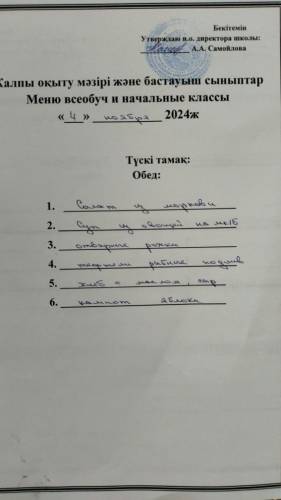 Бекітемін
Утверждаю и.о. директора школы:
А.А. Самойлова
Жалпы оқыту мәзірі және бастауыш сыныптар
Меню всеобуч и начальные классы
« 4 » ноября 2024ж
Түскі тамақ:
Обед:
1. Салат из моркови
2. Суп из овощей на м/к/б
3. отварные рожки
4. тефтели рыбные подлив
5. хлеб с маслом, сыр
6. компот яблоки